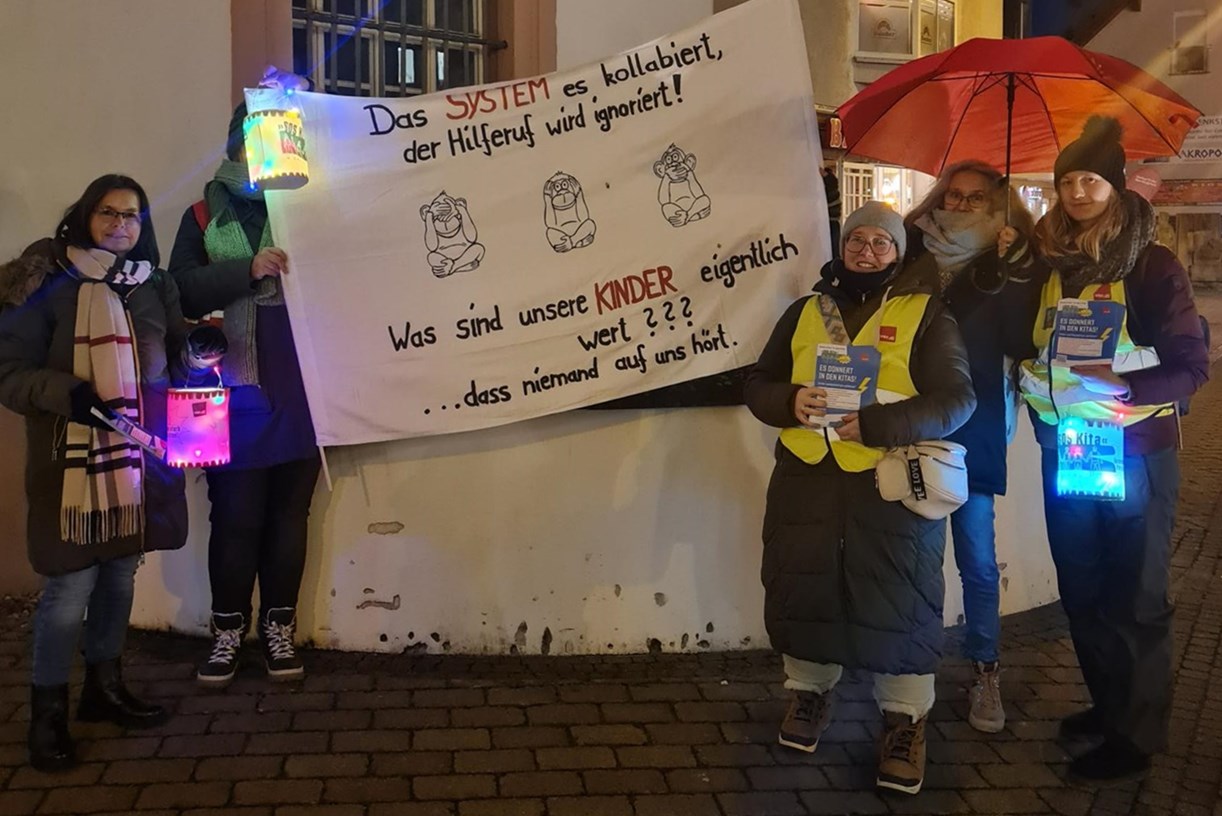 Das SYSTEM es kollabiert,
der Hilferuf wird ignoriert!
Was sind unsere KINDER eigentlich
wert ???
...dass niemand auf uns hört.
ES DONNERT
IN DEN KITAS!
ES DONNERT
IN DEN KITAS!
SOS Kita
AKROPO